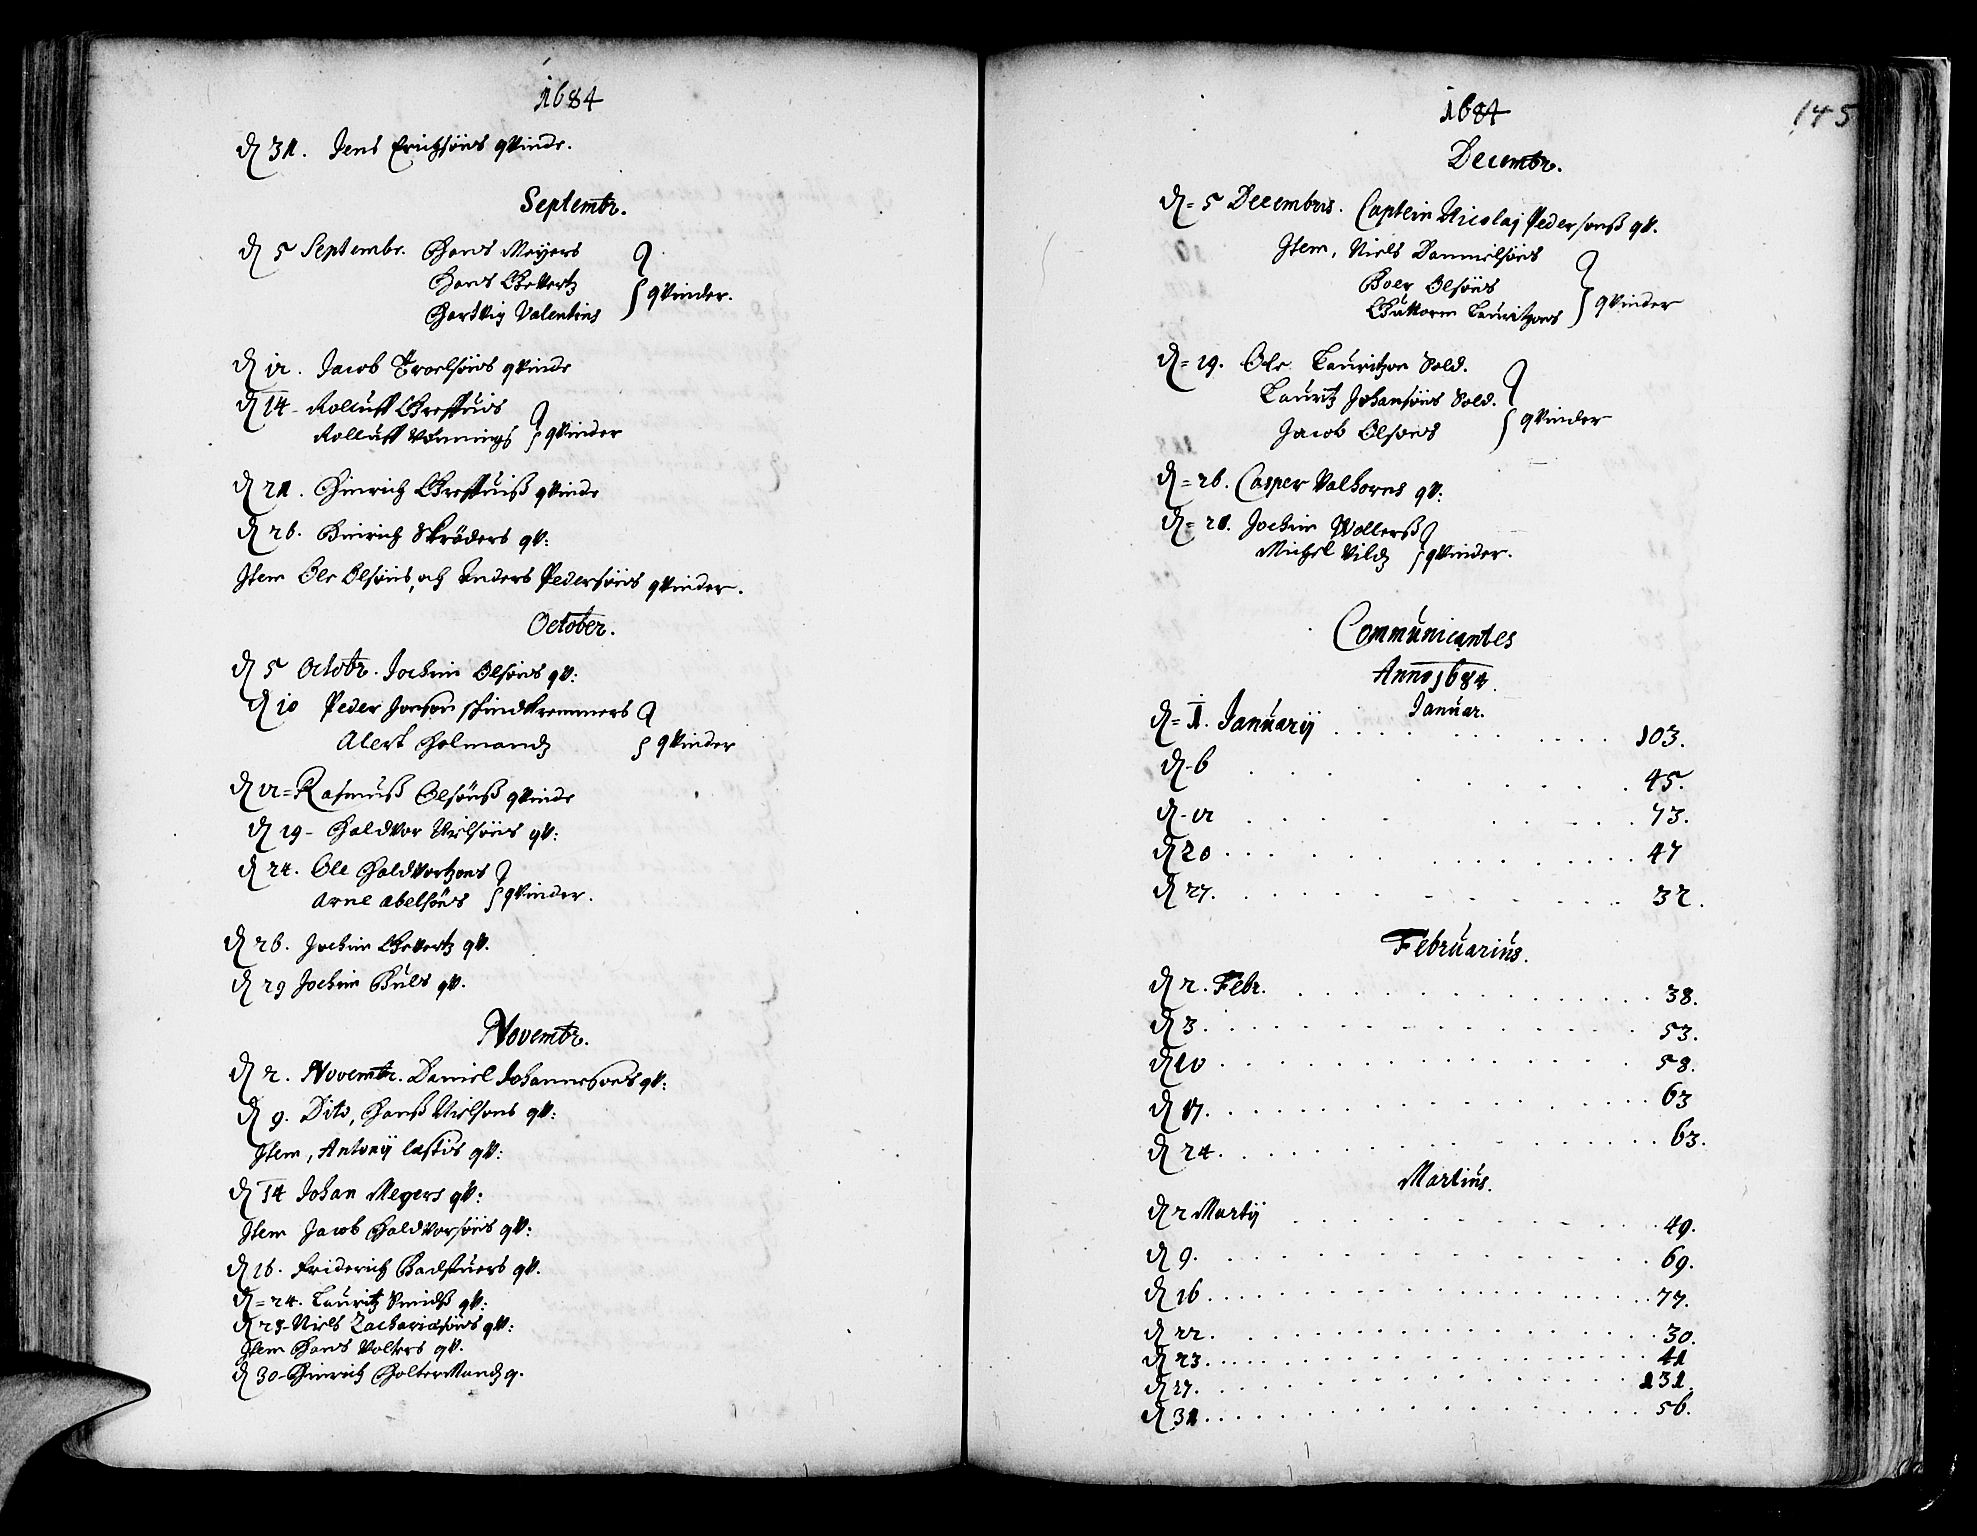 1684
d 31. Jens Erichsøns qvinde.
Septembr.
d 5 Septembr. Hans Meyers
Hans Gevertz
Hartvig Valentins } qvinder.
d 12. Jacob Troelsøns qvinde
d 14- Rolluff Greffuis
Rolluff Vonnings } qvinder
d 21. Hinrich Greffuiß qvinde
d 26. Hinrich Skrøders qv:
Item Ole Olsøns, och Anders Pedersøns qvinder.
October.
d 5 Octobr. Jochim Olsøns qv:
d 10 Peder Jonson skindkremmers
Alert Holmands } qvinder
d 12= Rasmuß Olsønß qvinde
d 19- Haldvor Nielsøns qv:
d 24. Ole Haldvortzons
Arne Abelsøns } qvinder.
d 26. Jochim Gevertz qv.
d 29 Jochim Buls qv.
Novembr.
d 2. Novembr. Daniel Johannesons qv:
d 9. Dito, Hanß Nielsons qv:
Item, Antonij Læstis qv:
d 14 Johan Meyers qv:
Item Jacob Haldvorsøns qv:
d 16. Friderich Badstuers qv.
d = 24. Lauritz Smidß qv:
d 28- Niels Zachariæsøns qv:
Item Hans Volters qv.
d 30- Hinrich Holtermands q.
1684
145
Decembr.
d = 5 Decembris. Captein Nicolaj Pedersonß qv.
Item, Niels Dannielsøns
Boer Olsøns
Guttorm Lauritzons } qvinder
d = 19. Ole Lauritzon Sold.
Lauritz Johansøns Sold.
Jacob Olsøns } qvinder
d = 26. Casper Valhorns qv:
d = 28. Jochim Wollerß
Michel Vilds } qvinder.
Communicantes
Anno 1684.
Januar.
d = 1. Januarij . . . . . . . . 103.
d - 6 . . . . . . . . 45.
d - 12 . . . . . . . . 73.
d 20 . . . . . . . . 47
d 27. . . . . . . . . 32.
Februarius.
d 2. Febr. . . . . . . . . 38.
d 3. . . . . . . . . 53.
d 10 . . . . . . . . 58.
d 17. . . . . . . . . 63
d 24. . . . . . . . . 63.
Martius.
d 2 Martij . . . . . . . . 49.
d 9. . . . . . . . . 69.
d 16 . . . . . . . . 77.
d 22. . . . . . . . . 30.
d 23. . . . . . . . . 41
d 27. . . . . . . . . 131.
d 31. . . . . . . . . 56.